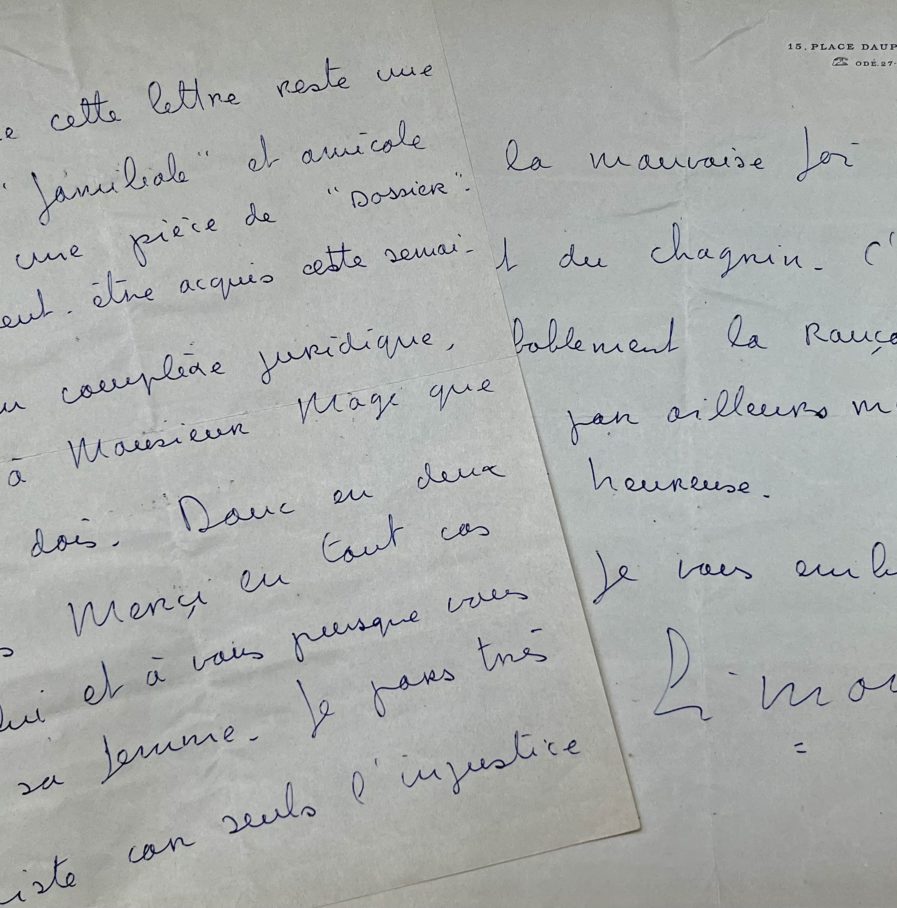 e cette lettre reste une
"familiale" et amicale
une pièce de "Dossier".
eut. être acquis cette semai-
complexe juridique,
à Monsieur Mage que
dois. Donc en deux
s Merçi en tout cas
lui et à vous puisque vous
sa femme. Je pars très
iste car seuls l'injustice
15, PLACE DAUP
☎ ODÉ.27-
la mauvaise foi
t du chagrin. C'
bablement la Ranço
par ailleurs m
heureuse.
Je vous emb